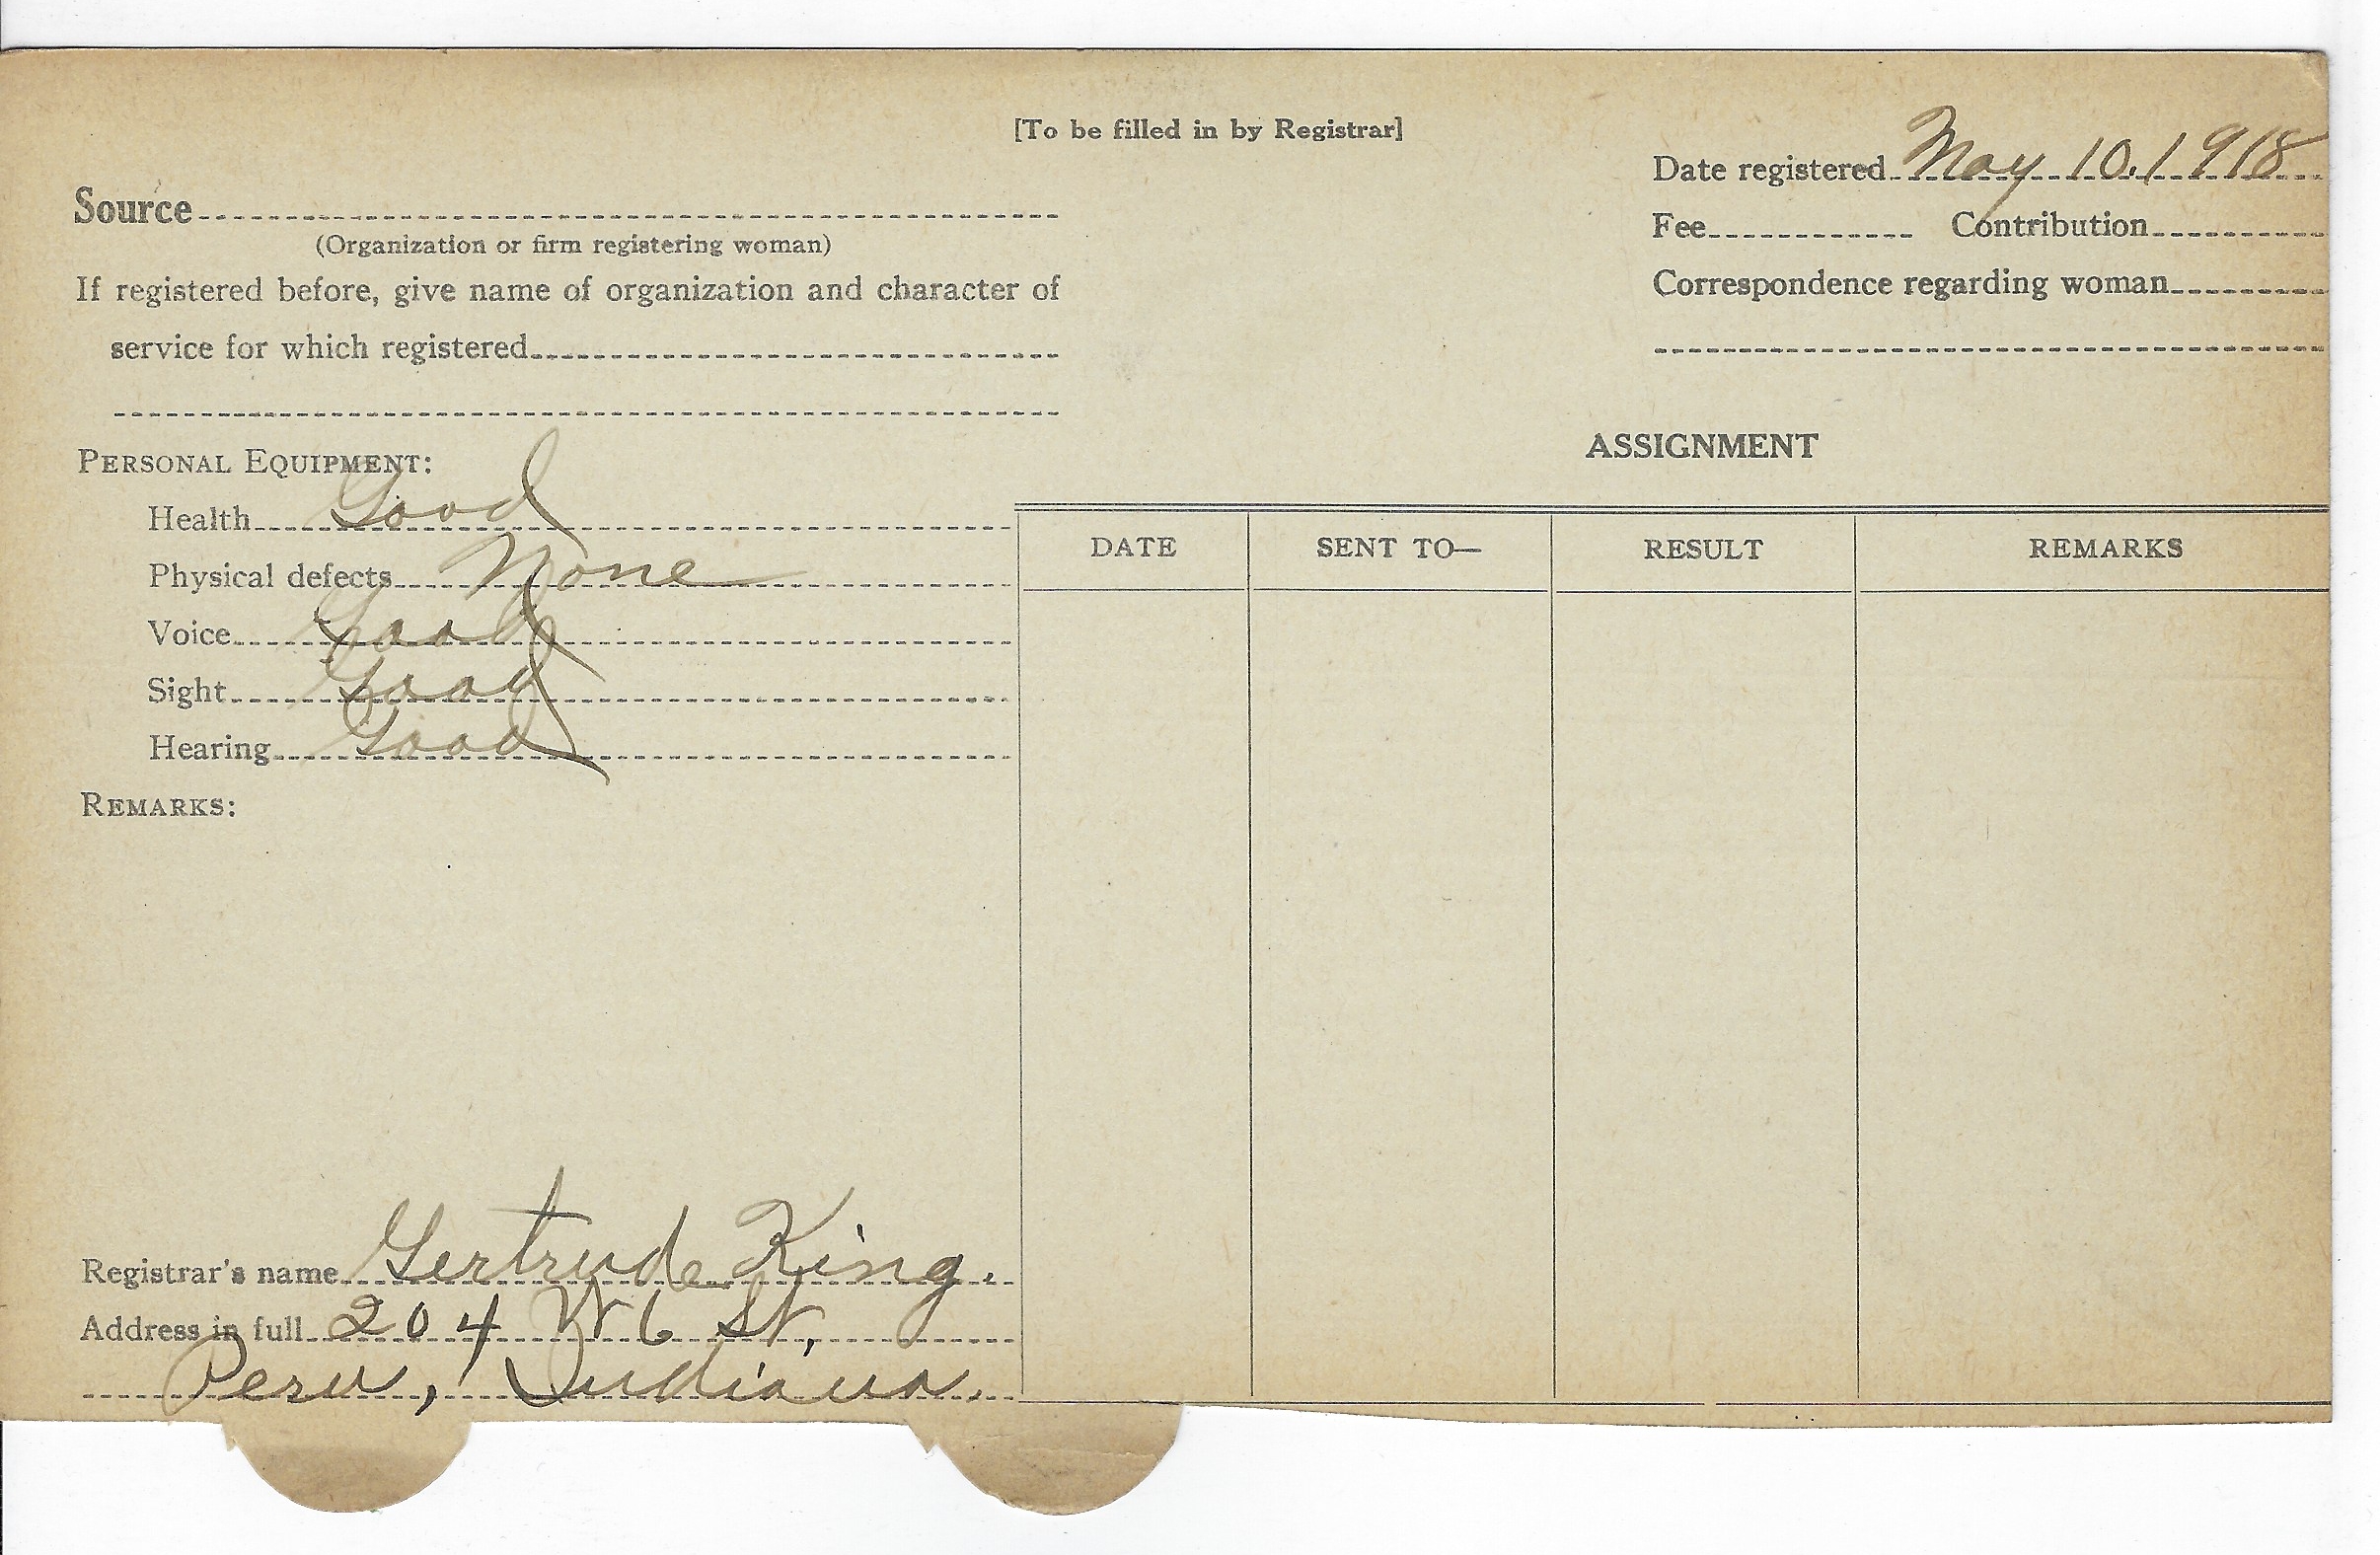 [To be filled in by Registrar]
Date registered May 10. 1918
Source
(Organization or firm registering woman)
Fee Contribution
If registered before, give name of organization and character of
service for which registered
Correspondence regarding woman
PERSONAL EQUIPMENT:
Health Good
Physical defects None
Voice Good
Sight Good
Hearing Good
REMARKS:
Registrar's name Gertrude King.
Address in full 204 W 6 St,
Peru, Indiana.
ASSIGNMENT
DATE SENT TO— RESULT REMARKS